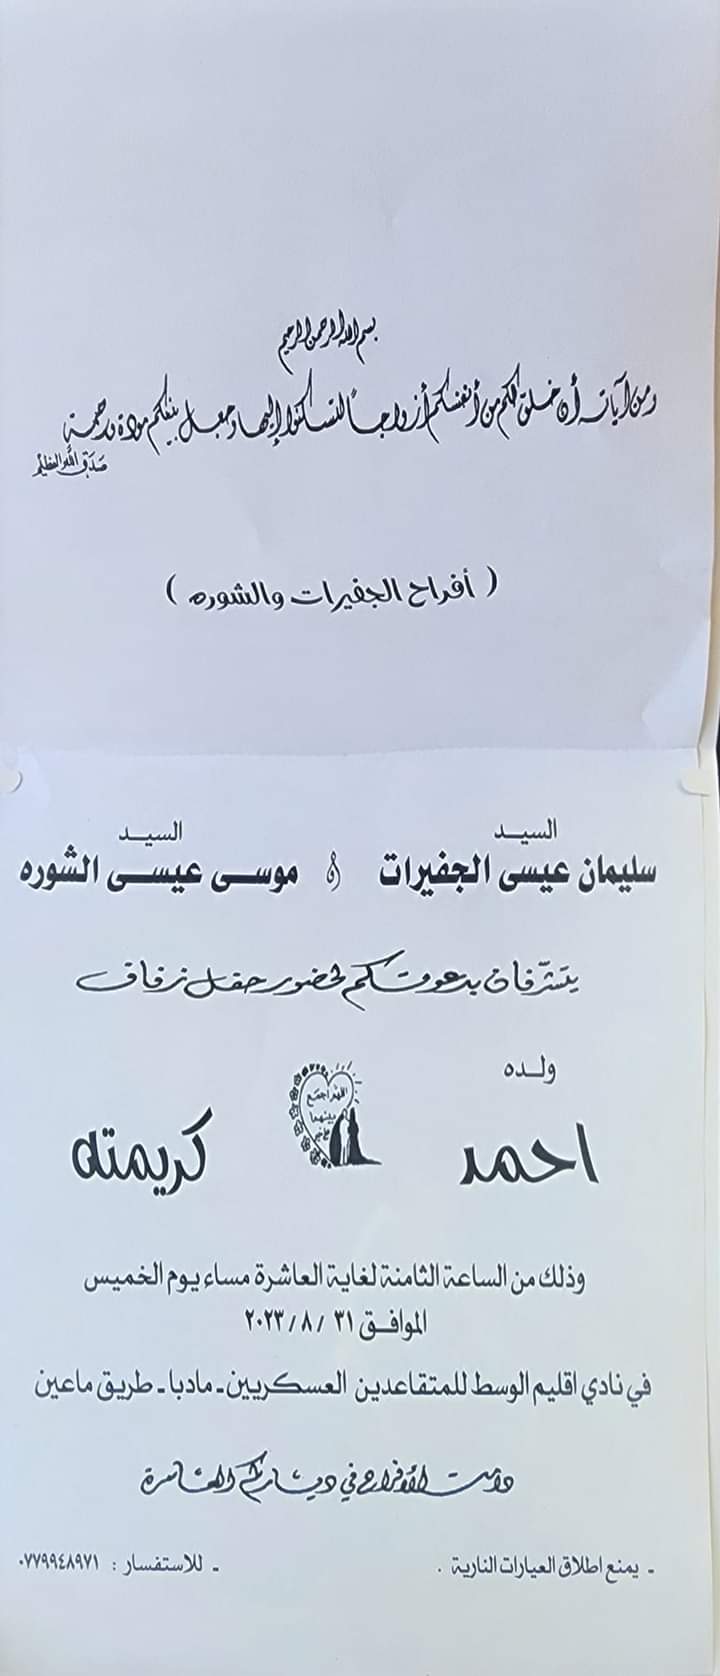 بسم الله الرحمن الرحيم
ومن آياته أن خلق لكم من أنفسكم أزواجاً لتسكنوا إليها وجعل بينكم مودة ورحمة
صدق الله العظيم
( أفراح الجفيرات والشوره )
السيد السيد
سليمان عيسى الجفيرات و موسى عيسى الشوره
يتشرفان بدعوتكم لحضور حفل زفاف
ولده
اللهم اجمع
بينهما
بخير
احمد كريمته
وذلك من الساعة الثامنة لغاية العاشرة مساء يوم الخميس
الموافق ٣١ / ٨ / ٢٠٢٣
في نادي اقليم الوسط للمتقاعدين العسكريين - مادبا - طريق ماعين
دامت الأفراح في دياركم العامرة
- يمنع اطلاق العيارات النارية . - للاستفسار : ٠٧٧٩٩٤٨٩٧١